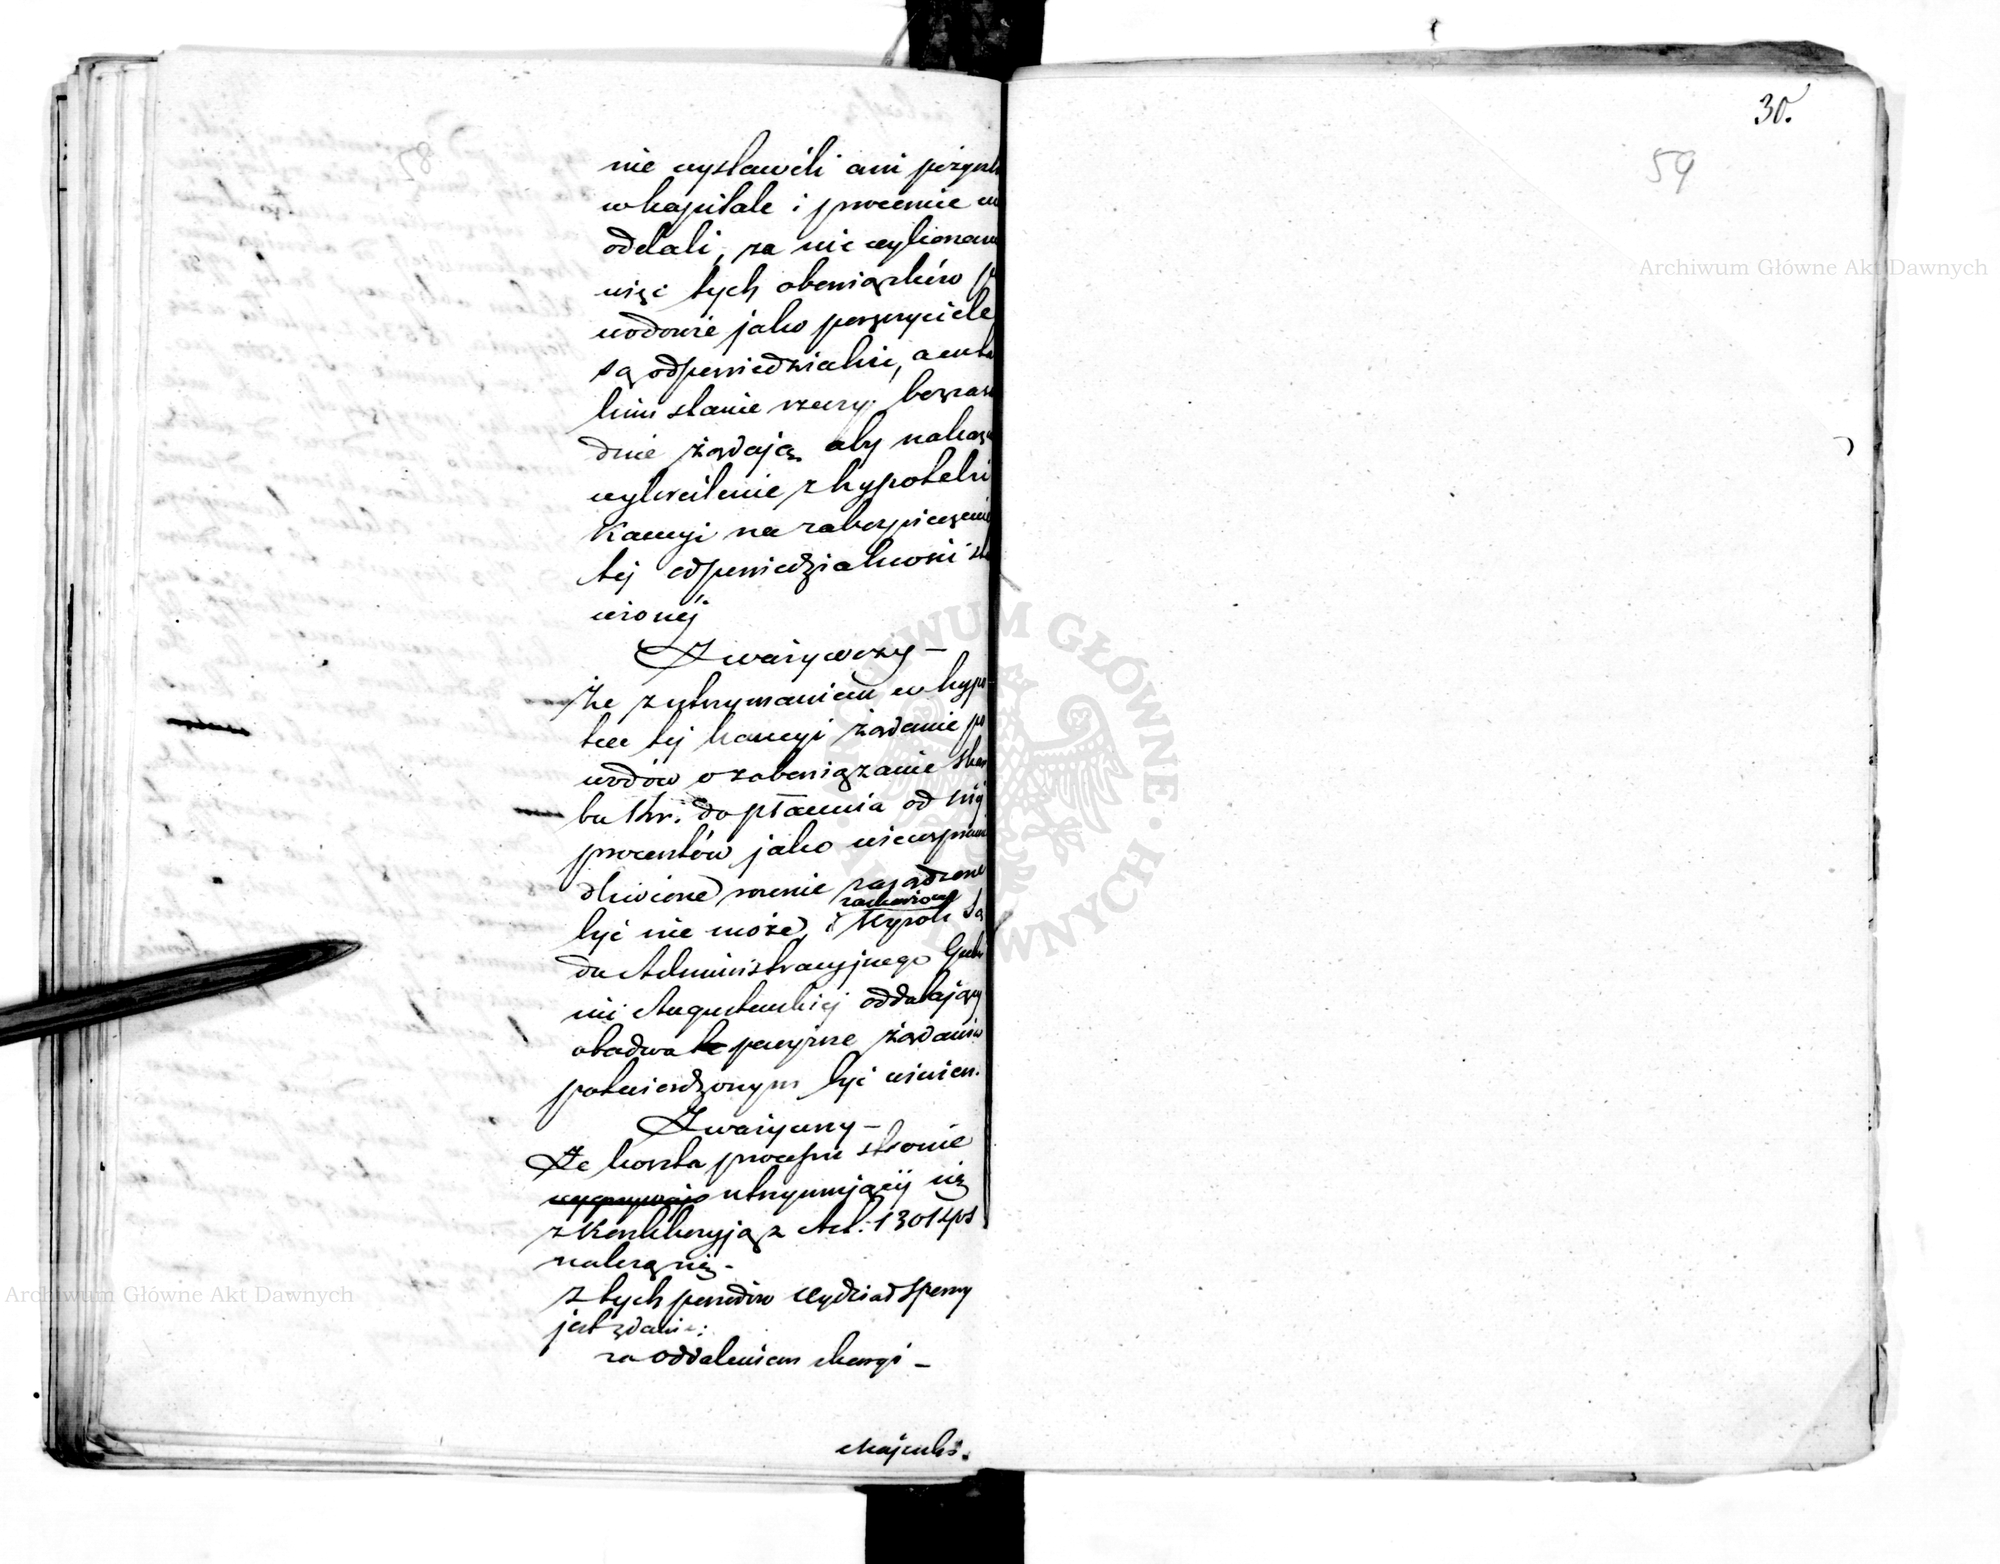 58
nie wystawili ani pożycz
w kapitale i procencie w
oddali, za nie wykonanie
więc tych obowiązków po
wodowie jako poręczyciele
są odpowiedzialni, a w ta
kim stanie rzeczy bezzasa
dnie żądają aby nakaza
wykreślenie z hypoteki
Kaucyi na zabezpieczenie
tej odpowiedzialności sta
wionej
Zważywszy —
Że z utrzymaniem w hypo
tece tej kaucyi żądanie po
wodów o zobowiązanie Skar
bu Kr. do płacenia od niej
procentów jako nieuspra
dliwione ... zasądzone
być nie może, i Wyrok Są
du Administracyjnego Guber
nii Augustowskiej oddalający
obadwa te powyższe żądania
potwierdzonym być winien.
Zważywszy —
Że koszta processu stronie
utrzymującej się
z konkluzyją z Art. 130 Kps
należą się.
Z tych powodów Wydział Sporny
jest zdania:
za oddaleniem skargi —
Majewski.
30.
59
Archiwum Główne Akt Dawnych
Archiwum Główne Akt Dawnych
ARCHIWUM GŁÓWNE AKT DAWNYCH